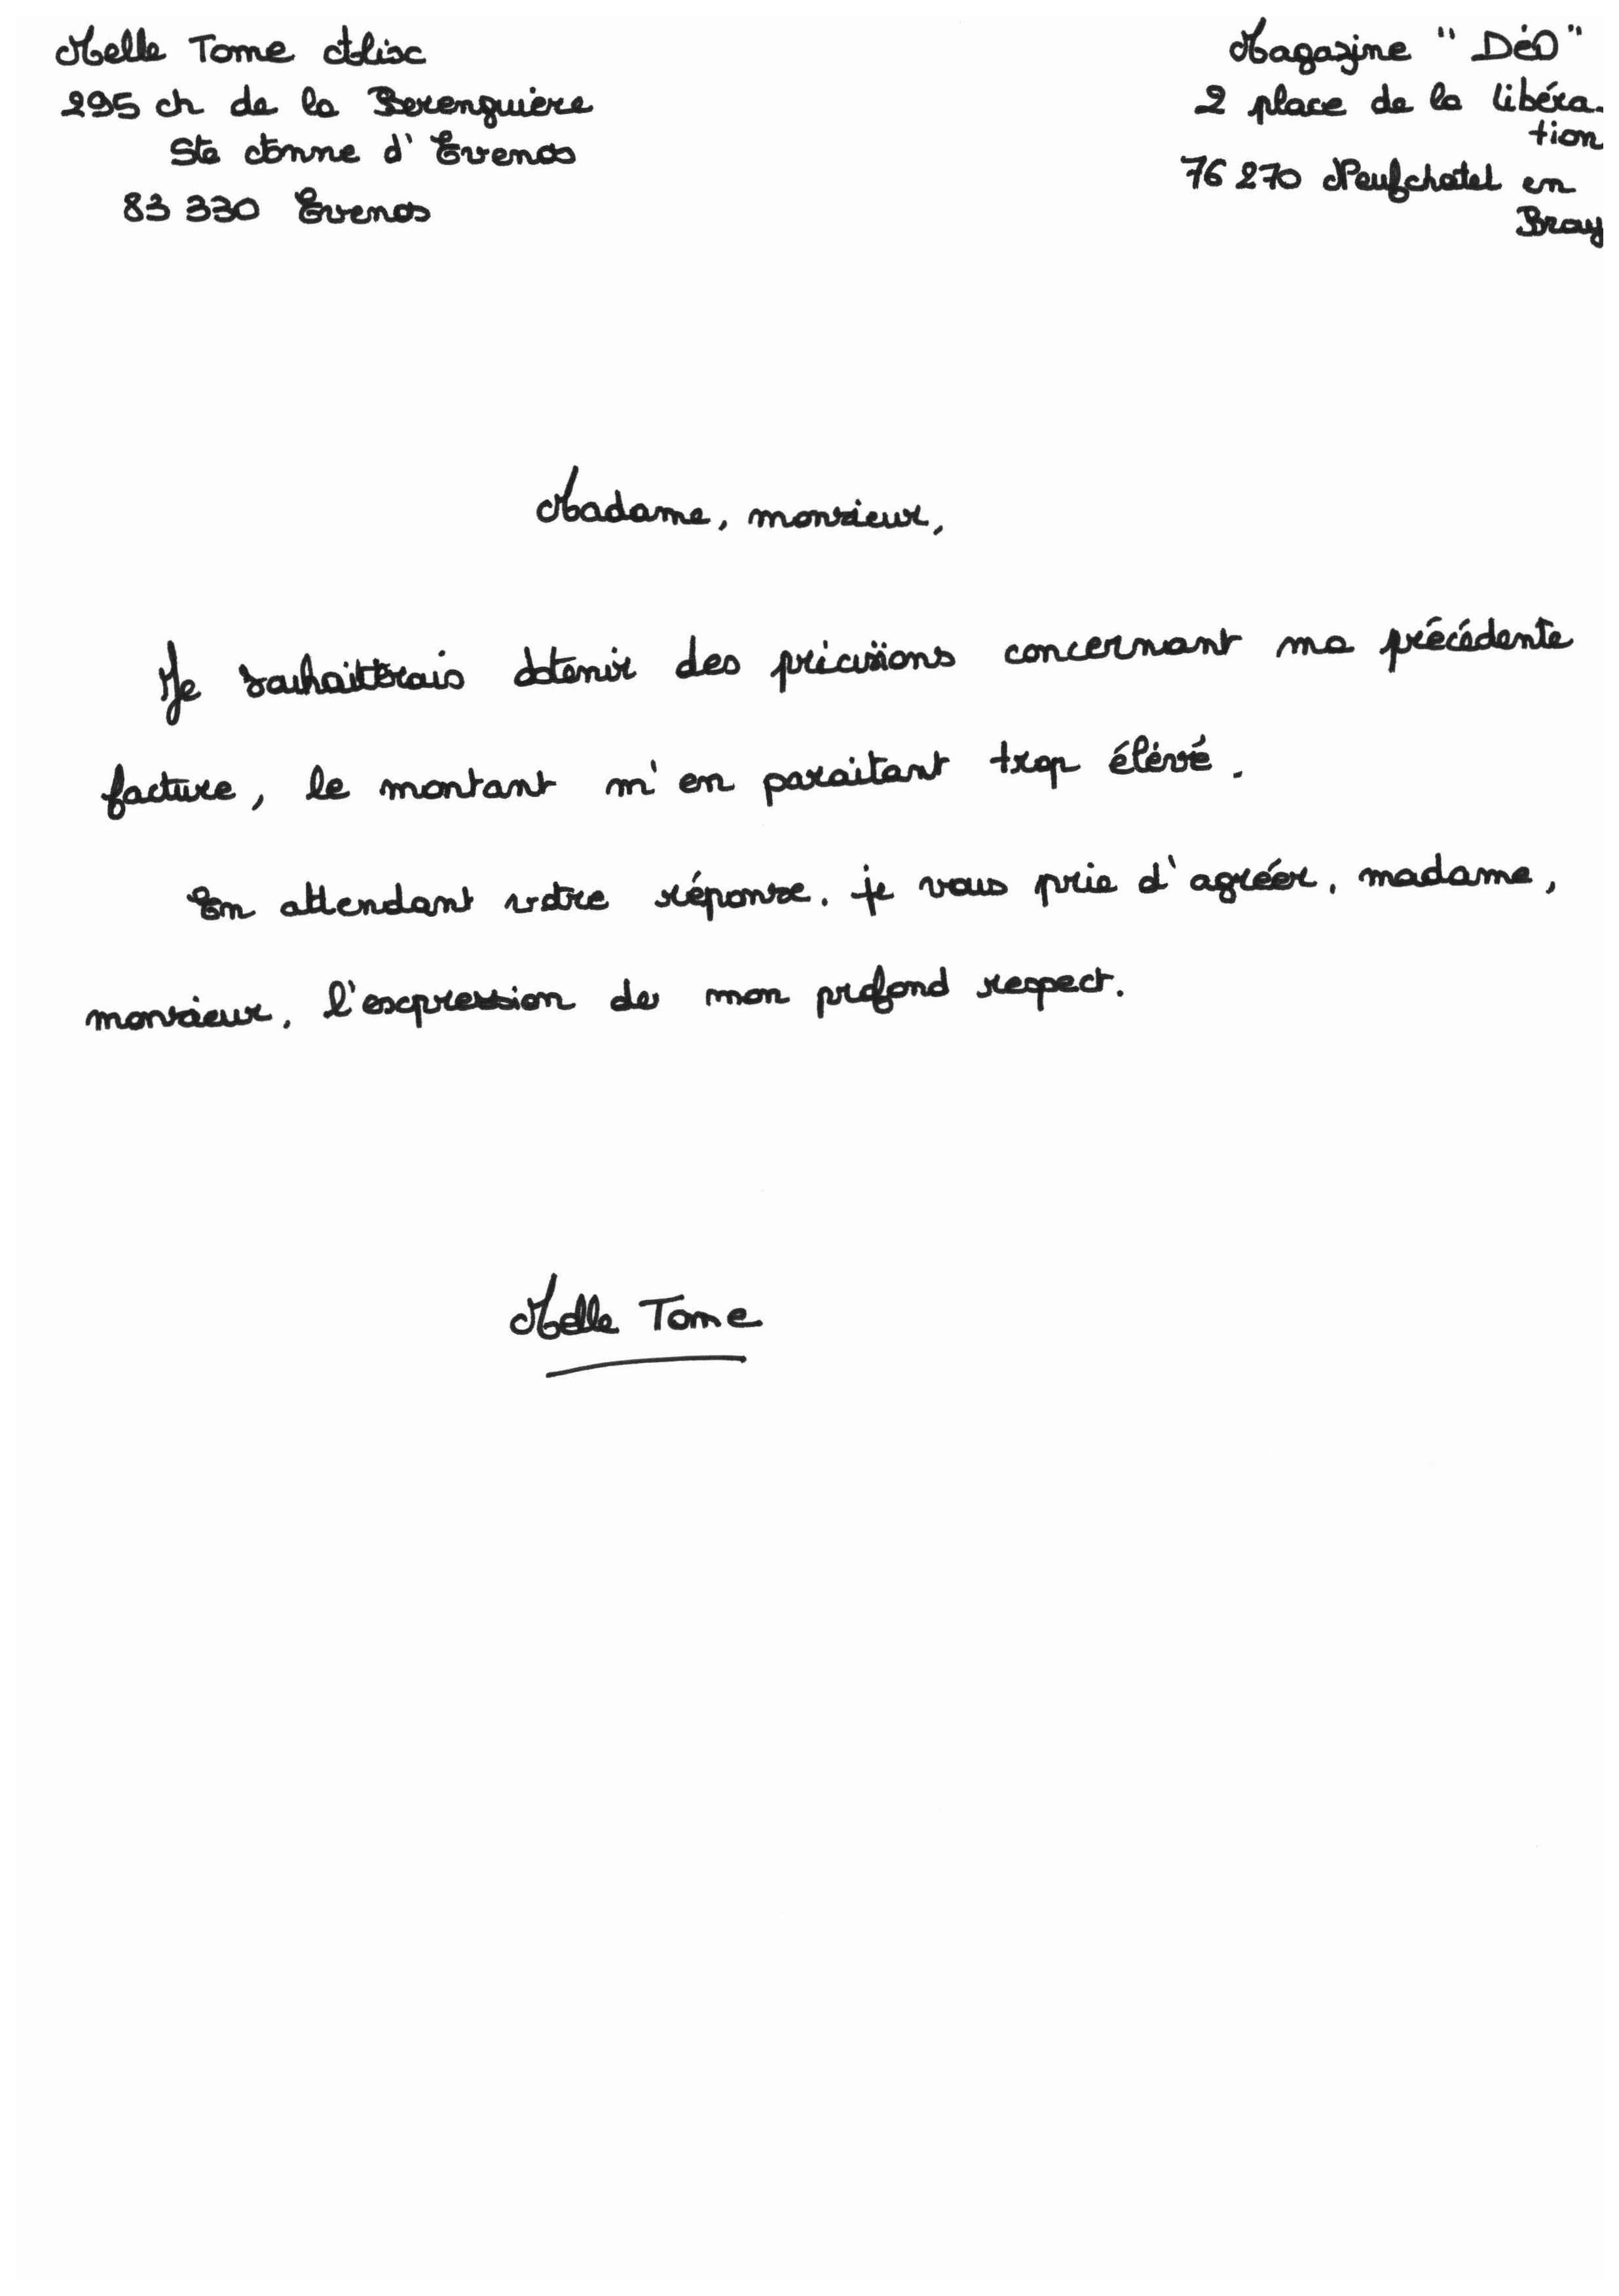 Melle Tome Alix
295 ch de la Berenguière
Ste Anne d'Evenos
83 330 Evenos
Magazine "DéD"
2 place de la libéra-
tion
76 270 Neufchatel en
Bray
Madame, monsieur,
Je souhaitterais obtenir des précisions concernant ma précédente
facture, le montant m'en paraitant trop élévé.
En attendant votre réponse, je vous prie d'agréer, madame,
monsieur, l'expression de mon profond respect.
Melle Tome